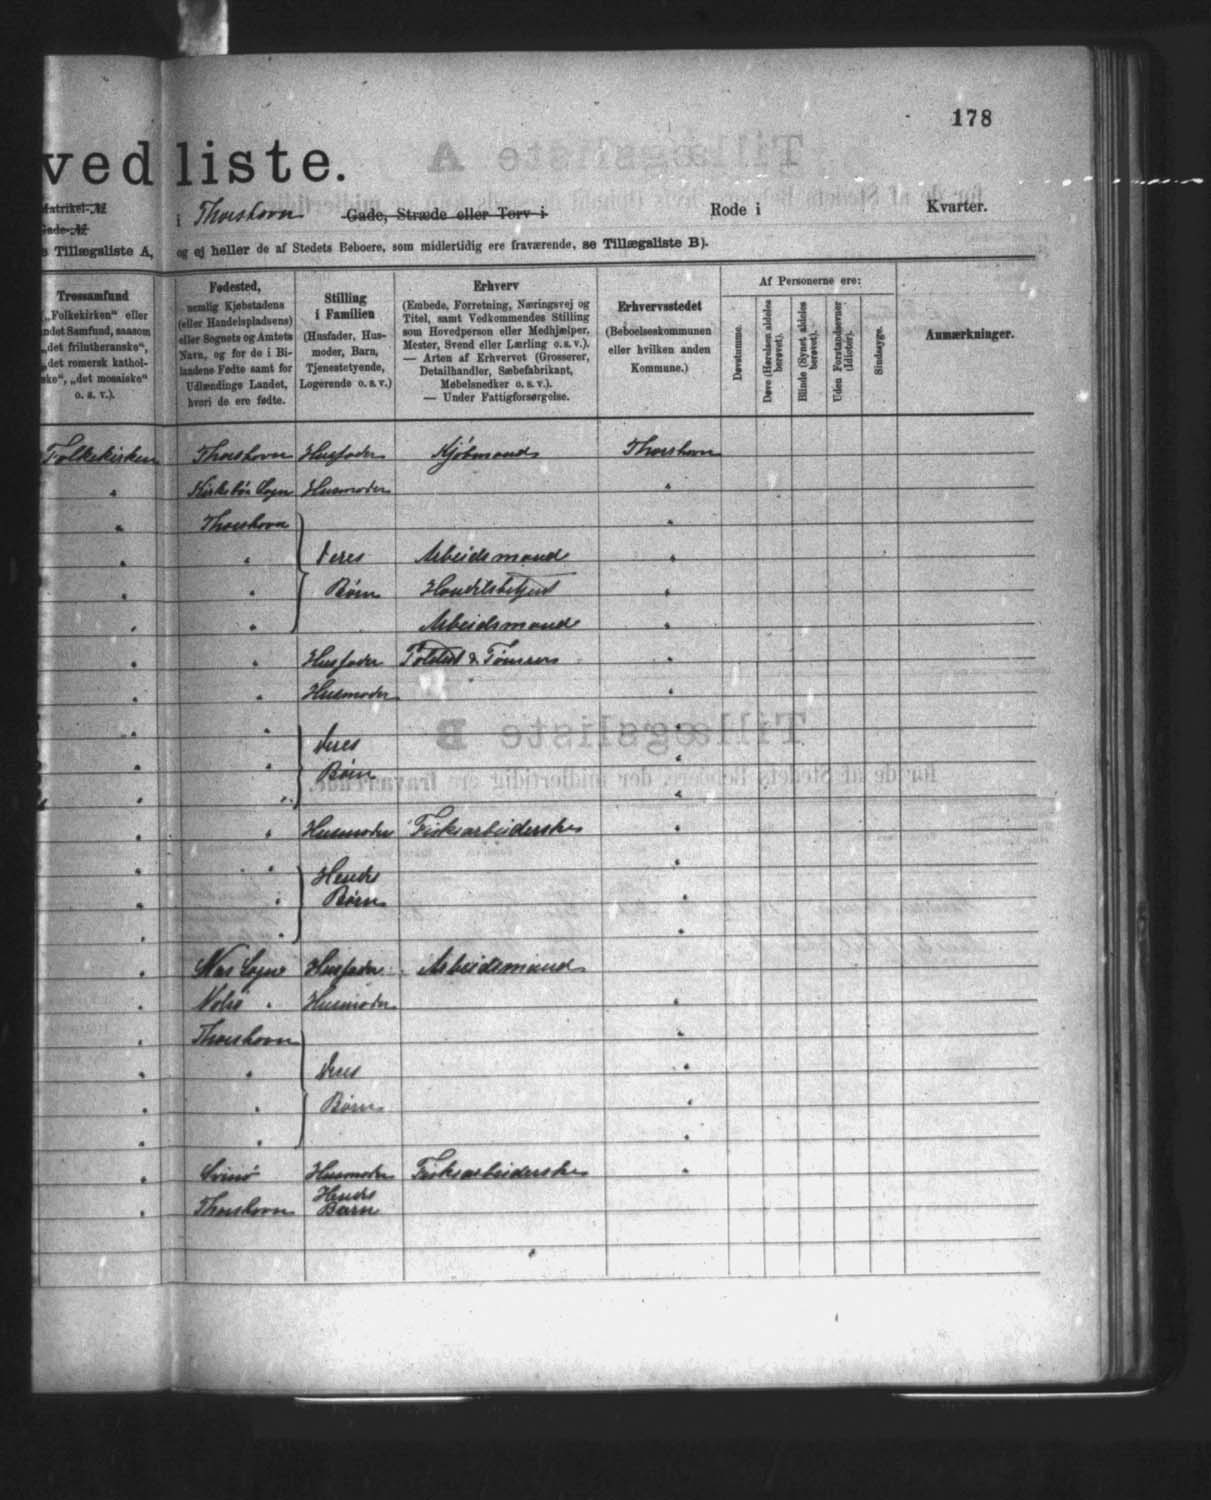 178
ved liste.
Matrikel-№
i Thorshavn Gade, Stræde eller Torv i Rode i Kvarter.
Gade-№
Tillægsliste A, og ej heller de af Stedets Beboere, som midlertidig ere fraværende, se Tillægsliste B).
Trossamfund
(„Folkekirken“ eller
andet Samfund, saasom
„det frilutheranske“,
„det romersk kathol-
ske“, „det mosaiske“
o. s. v.).
Fødested,
nemlig Kjøbstadens
(eller Handelspladsens)
eller Sognets og Amtets
Navn, og for de i Bi-
landene Fødte samt for
Udlændinge Landet,
hvori de ere fødte.
Stilling
i Familien
(Husfader, Hus-
moder, Barn,
Tjenestetyende,
Logerende o. s. v.)
Erhverv
(Embede, Forretning, Næringsvej og
Titel, samt Vedkommendes Stilling
som Hovedperson eller Medhjælper,
Mester, Svend eller Lærling o. s. v.).
— Arten af Erhvervet (Grosserer,
Detailhandler, Sæbefabrikant,
Møbelsnedker o. s. v.).
— Under Fattigforsørgelse.
Erhvervsstedet
(Beboelseskommunen
eller hvilken anden
Kommune.)
Af Personerne ere:
Døvstumme.
Døve (Hørelsen aldeles
berøvet).
Blinde (Synet aldeles
berøvet).
Uden Forstandsevner
(Idioter).
Sindssyge.
Anmærkninger.
Folkekirken Thorshavn Husfader Kjøbmand Thorshavn
" Kirkebø Sogn Husmoder "
" Thorshavn "
" " Deres Arbeidsmand "
" " Børn Handelsbetjent "
" " Arbeidsmand "
" " Husfader & Tømrer "
" " Husmoder "
" " Deres "
" " Børn "
" " "
" " Husmoder Fiskearbeiderske "
" " Hendes "
" " Børn "
" " "
" Næs Sogn Husfader Arbeidsmand
" Nolsø " Husmoder "
" Thorshavn "
" " Deres "
" " Børn "
" " "
" Svinø Husmoder Fiskearbeiderske "
" Thorshavn Hendes Barn